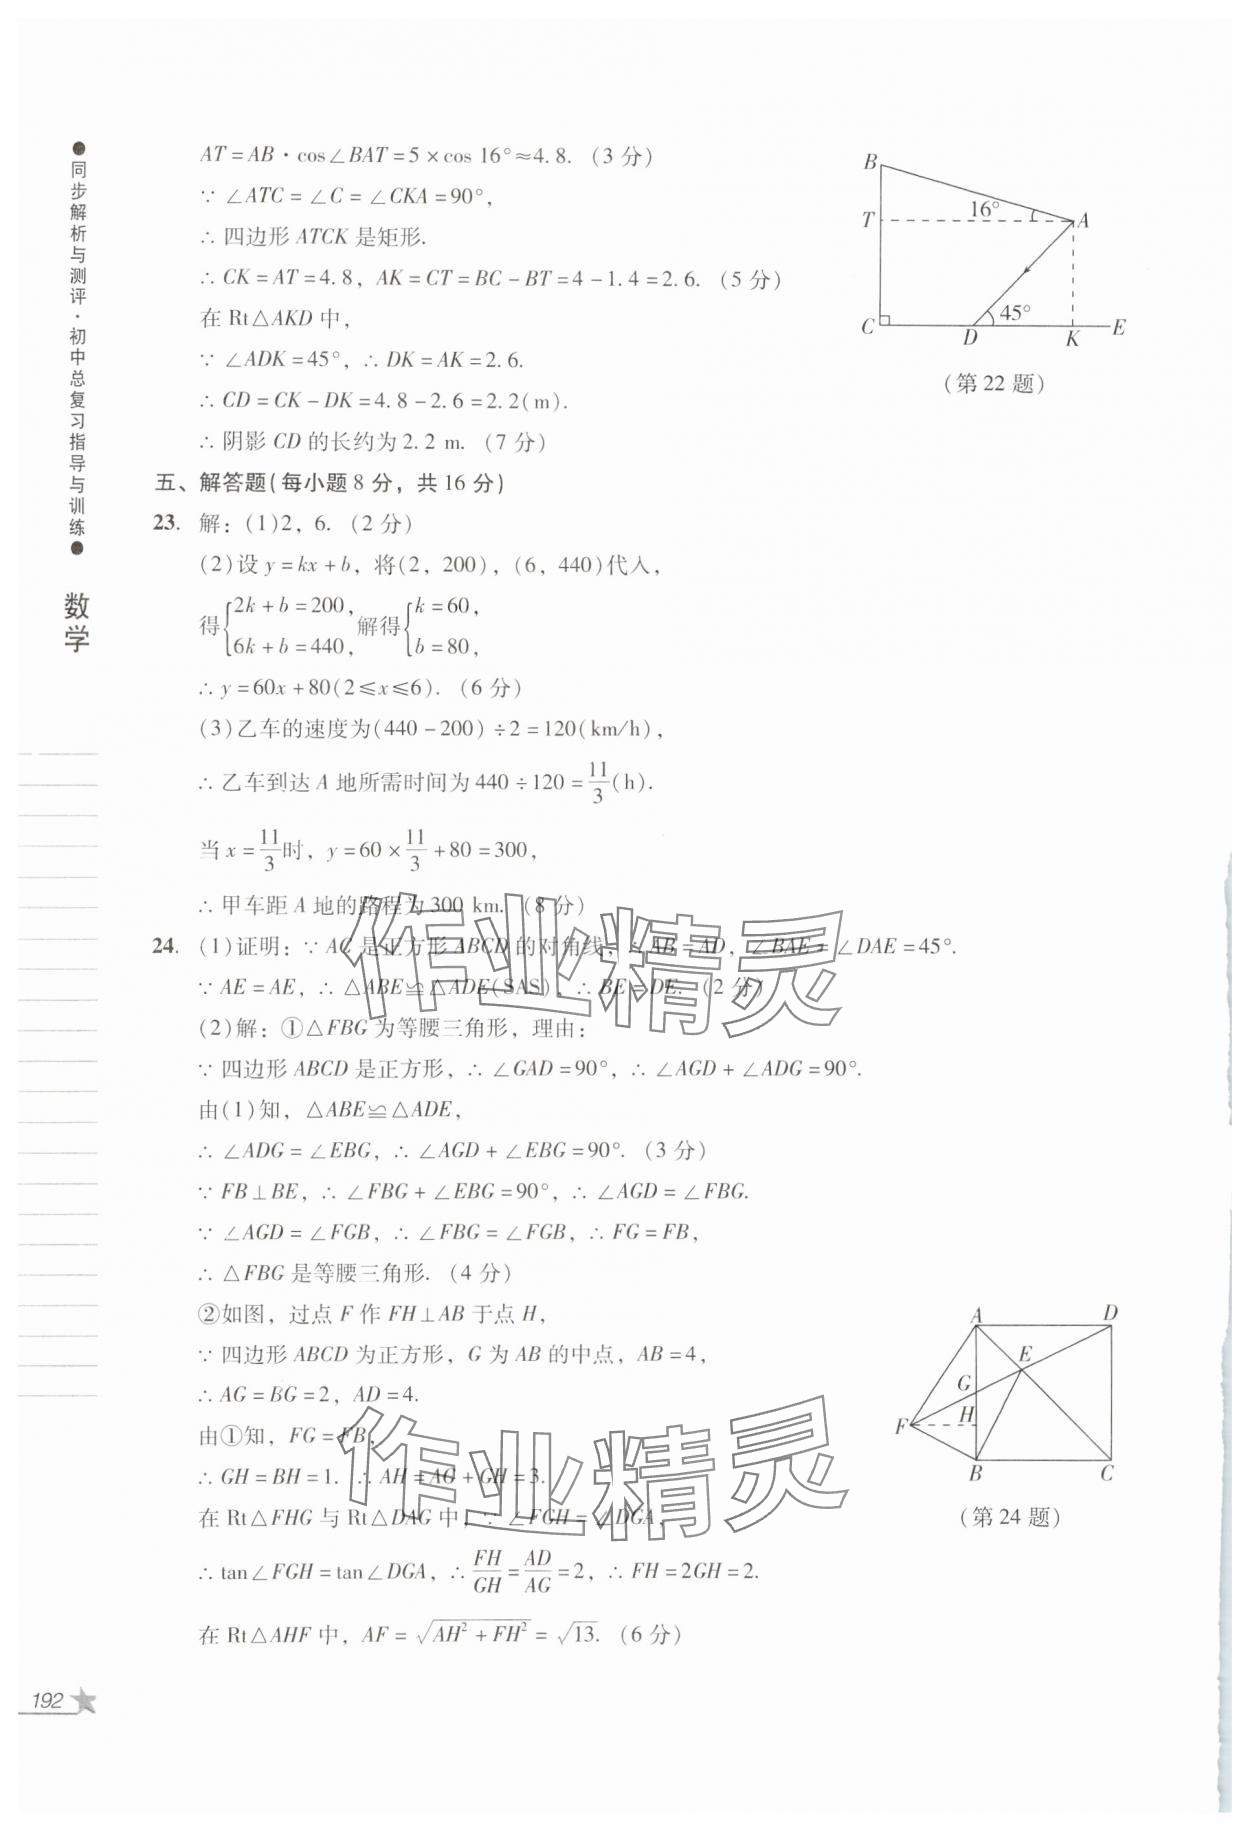 ●同步解析与测评·初中总复习指导与训练● 数学
AT=AB·cos∠BAT=5×cos 16°≈4.8.（3分）
∵ ∠ATC=∠C=∠CKA=90°，
∴ 四边形 ATCK 是矩形.
∴ CK=AT=4.8，AK=CT=BC-BT=4-1.4=2.6.（5分）
在 Rt△AKD 中，
∵ ∠ADK=45°，∴ DK=AK=2.6.
∴ CD=CK-DK=4.8-2.6=2.2(m).
∴ 阴影 CD 的长约为 2.2 m.（7分）
B
T
16°
A
C
D
45°
K
E
（第22题）
五、解答题(每小题8分，共16分)
23. 解：(1)2，6.（2分）
(2)设 y=kx+b，将(2，200)，(6，440)代入，
得{2k+b=200，6k+b=440，解得{k=60，b=80，
∴ y=60x+80(2≤x≤6).（6分）
(3)乙车的速度为(440-200)÷2=120(km/h)，
∴ 乙车到达 A 地所需时间为 440÷120=11/3(h).
当 x=11/3时，y=60×11/3+80=300，
∴ 甲车距 A 地的路程为 300 km.（8分）
24. (1)证明：∵ AC 是正方形 ABCD 的对角线，∴ AB=AD，∠BAE=∠DAE=45°.
∵ AE=AE，∴ △ABE≌△ADE(SAS)，∴ BE=DE.（2分）
(2)解：①△FBG 为等腰三角形，理由：
∵ 四边形 ABCD 是正方形，∴ ∠GAD=90°，∴ ∠AGD+∠ADG=90°.
由(1)知，△ABE≌△ADE，
∴ ∠ADG=∠EBG，∴ ∠AGD+∠EBG=90°.（3分）
∵ FB⊥BE，∴ ∠FBG+∠EBG=90°，∴ ∠AGD=∠FBG.
∵ ∠AGD=∠FGB，∴ ∠FBG=∠FGB，∴ FG=FB，
∴ △FBG 是等腰三角形.（4分）
②如图，过点 F 作 FH⊥AB 于点 H，
∵ 四边形 ABCD 为正方形，G 为 AB 的中点，AB=4，
∴ AG=BG=2，AD=4.
由①知，FG=FB，
∴ GH=BH=1. ∴ AH=AG+GH=3.
在 Rt△FHG 与 Rt△DAG 中，∵ ∠FGH=∠DGA，
∴ tan∠FGH=tan∠DGA，∴ FH/GH=AD/AG=2，∴ FH=2GH=2.
在 Rt△AHF 中，AF=√(AH²+FH²)=√13.（6分）
A
D
E
G
F
H
B
C
（第24题）
作业精灵
作业精灵
192